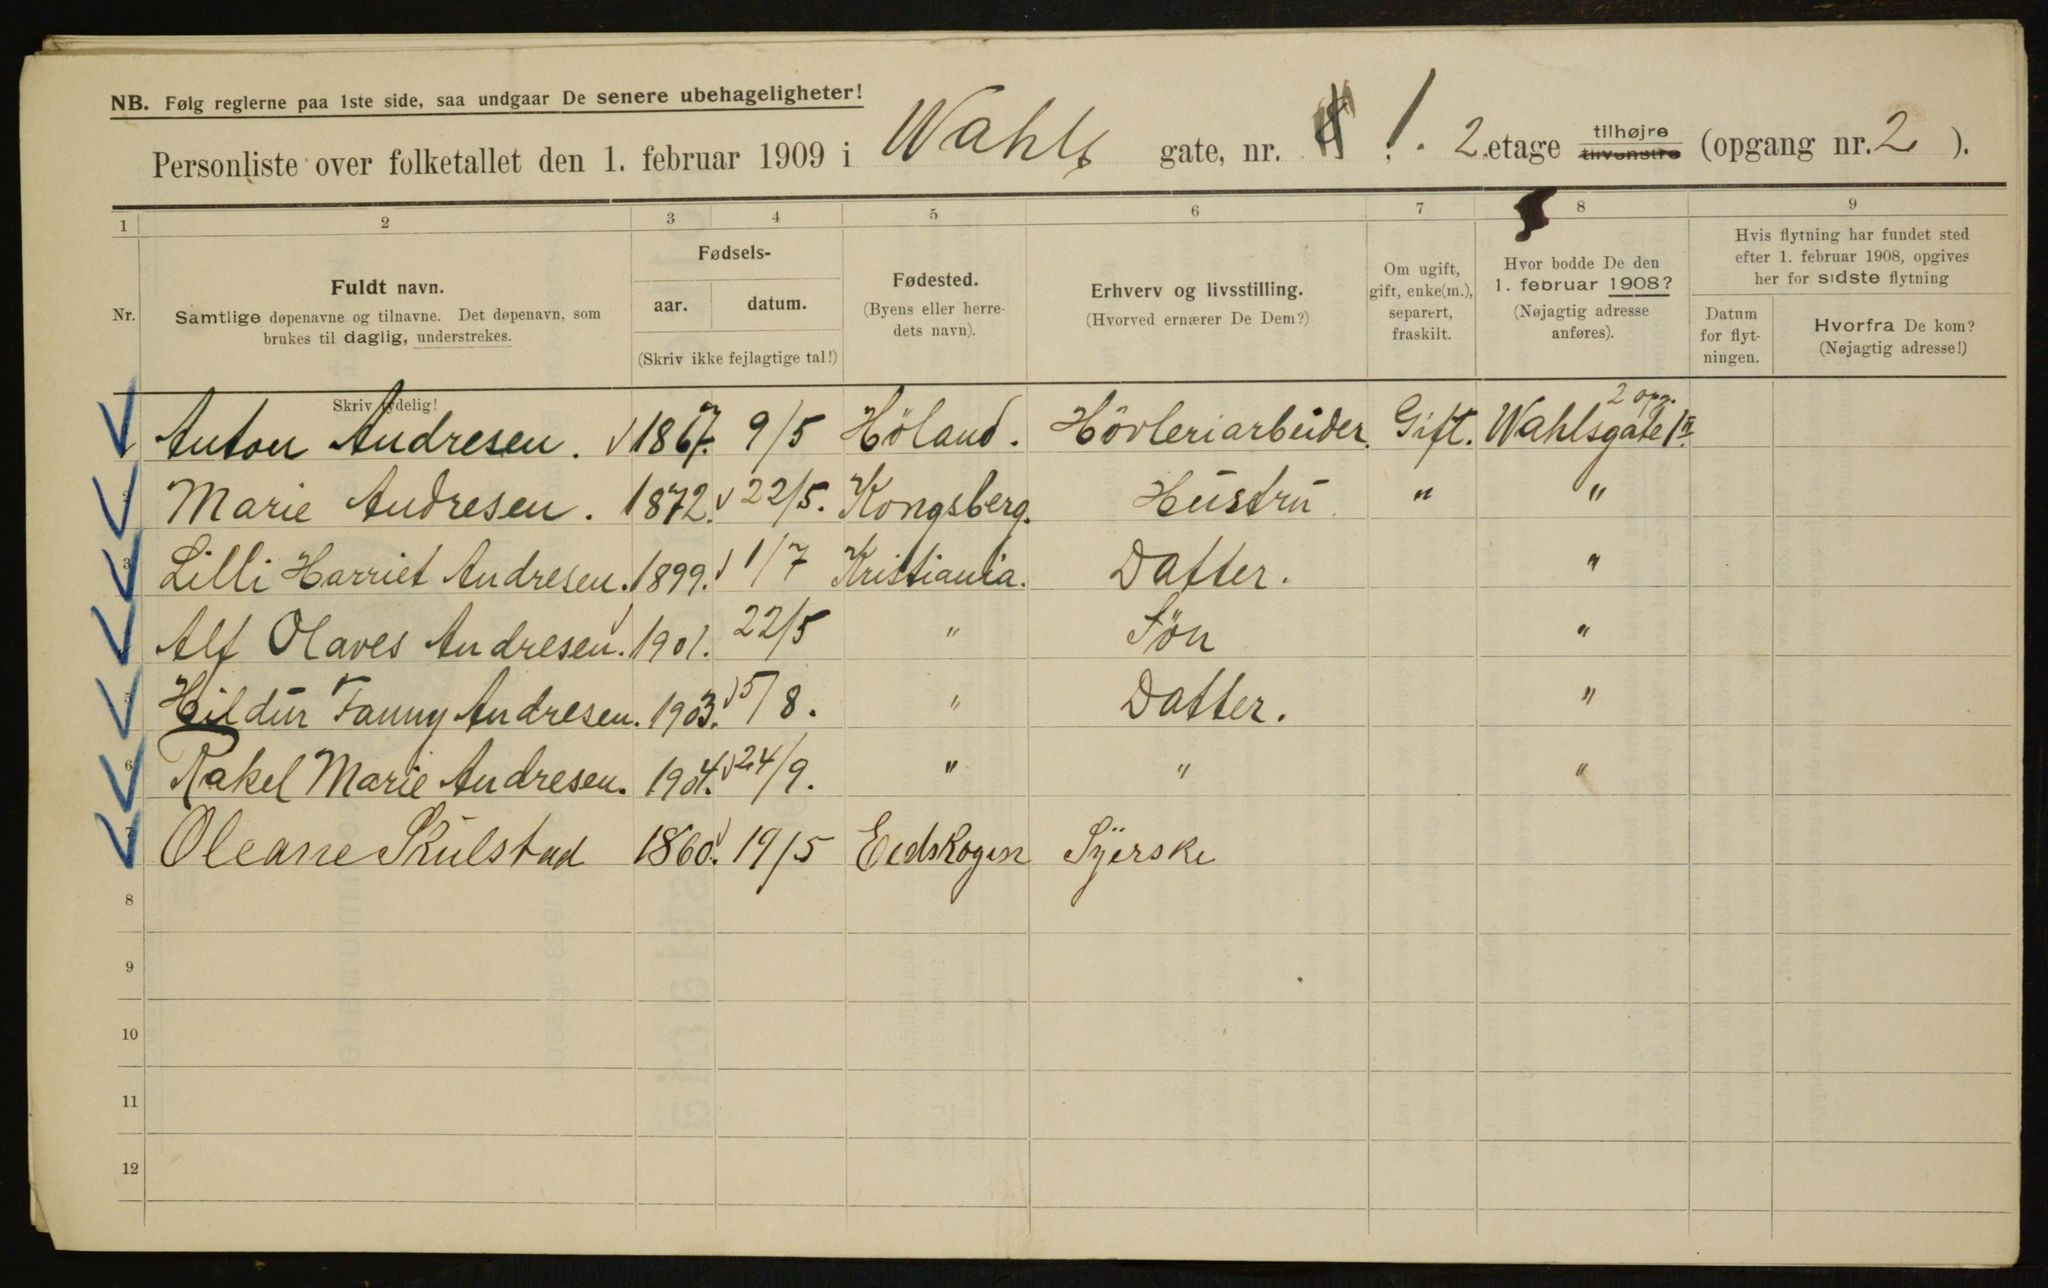 NB. Følg reglerne paa 1ste side, saa undgaar De senere ubehageligheter!
Personliste over folketallet den 1. februar 1909 i Wahls gate, nr. 1. 2 etage tilhøjre tilvenstre (opgang nr. 2 ).
1 2 3 4 5 6 7 8 9
Nr. Fuldt navn. Samtlige døpenavne og tilnavne. Det døpenavn, som brukes til daglig, understrekes.
Fødsels- aar. datum. (Skriv ikke fejlagtige tal!)
Fødested. (Byens eller herredets navn).
Erhverv og livsstilling. (Hvorved ernærer De Dem?)
Om ugift, gift, enke(m.), separert, fraskilt.
Hvor bodde De den 1. februar 1908? (Nøjagtig adresse anføres).
Hvis flytning har fundet sted efter 1. februar 1908, opgives her for sidste flytning
Datum for flytningen. Hvorfra De kom? (Nøjagtig adresse!)
Skriv tydelig!
Anton Andresen. 1867. 9/5 Höland. Hövleriarbeider. Gift. Wahlsgate 1 2 opg.
Marie Andresen. 1872. 22/5. Kongsberg. Hustru " "
3 Lilli Harriet Andresen. 1899. 1/7 Kristiania. Datter. "
Alf Olaves Andresen. 1901. 22/5 " Sön "
5 Hildur Fanny Andresen. 1903. 5/8. " Datter. "
6 Rakel Marie Andresen. 1904. 24/9. " " "
7 Oleane Skulstad 1860. 19/5 Eedskogen Syerske
8
9
10
11
12